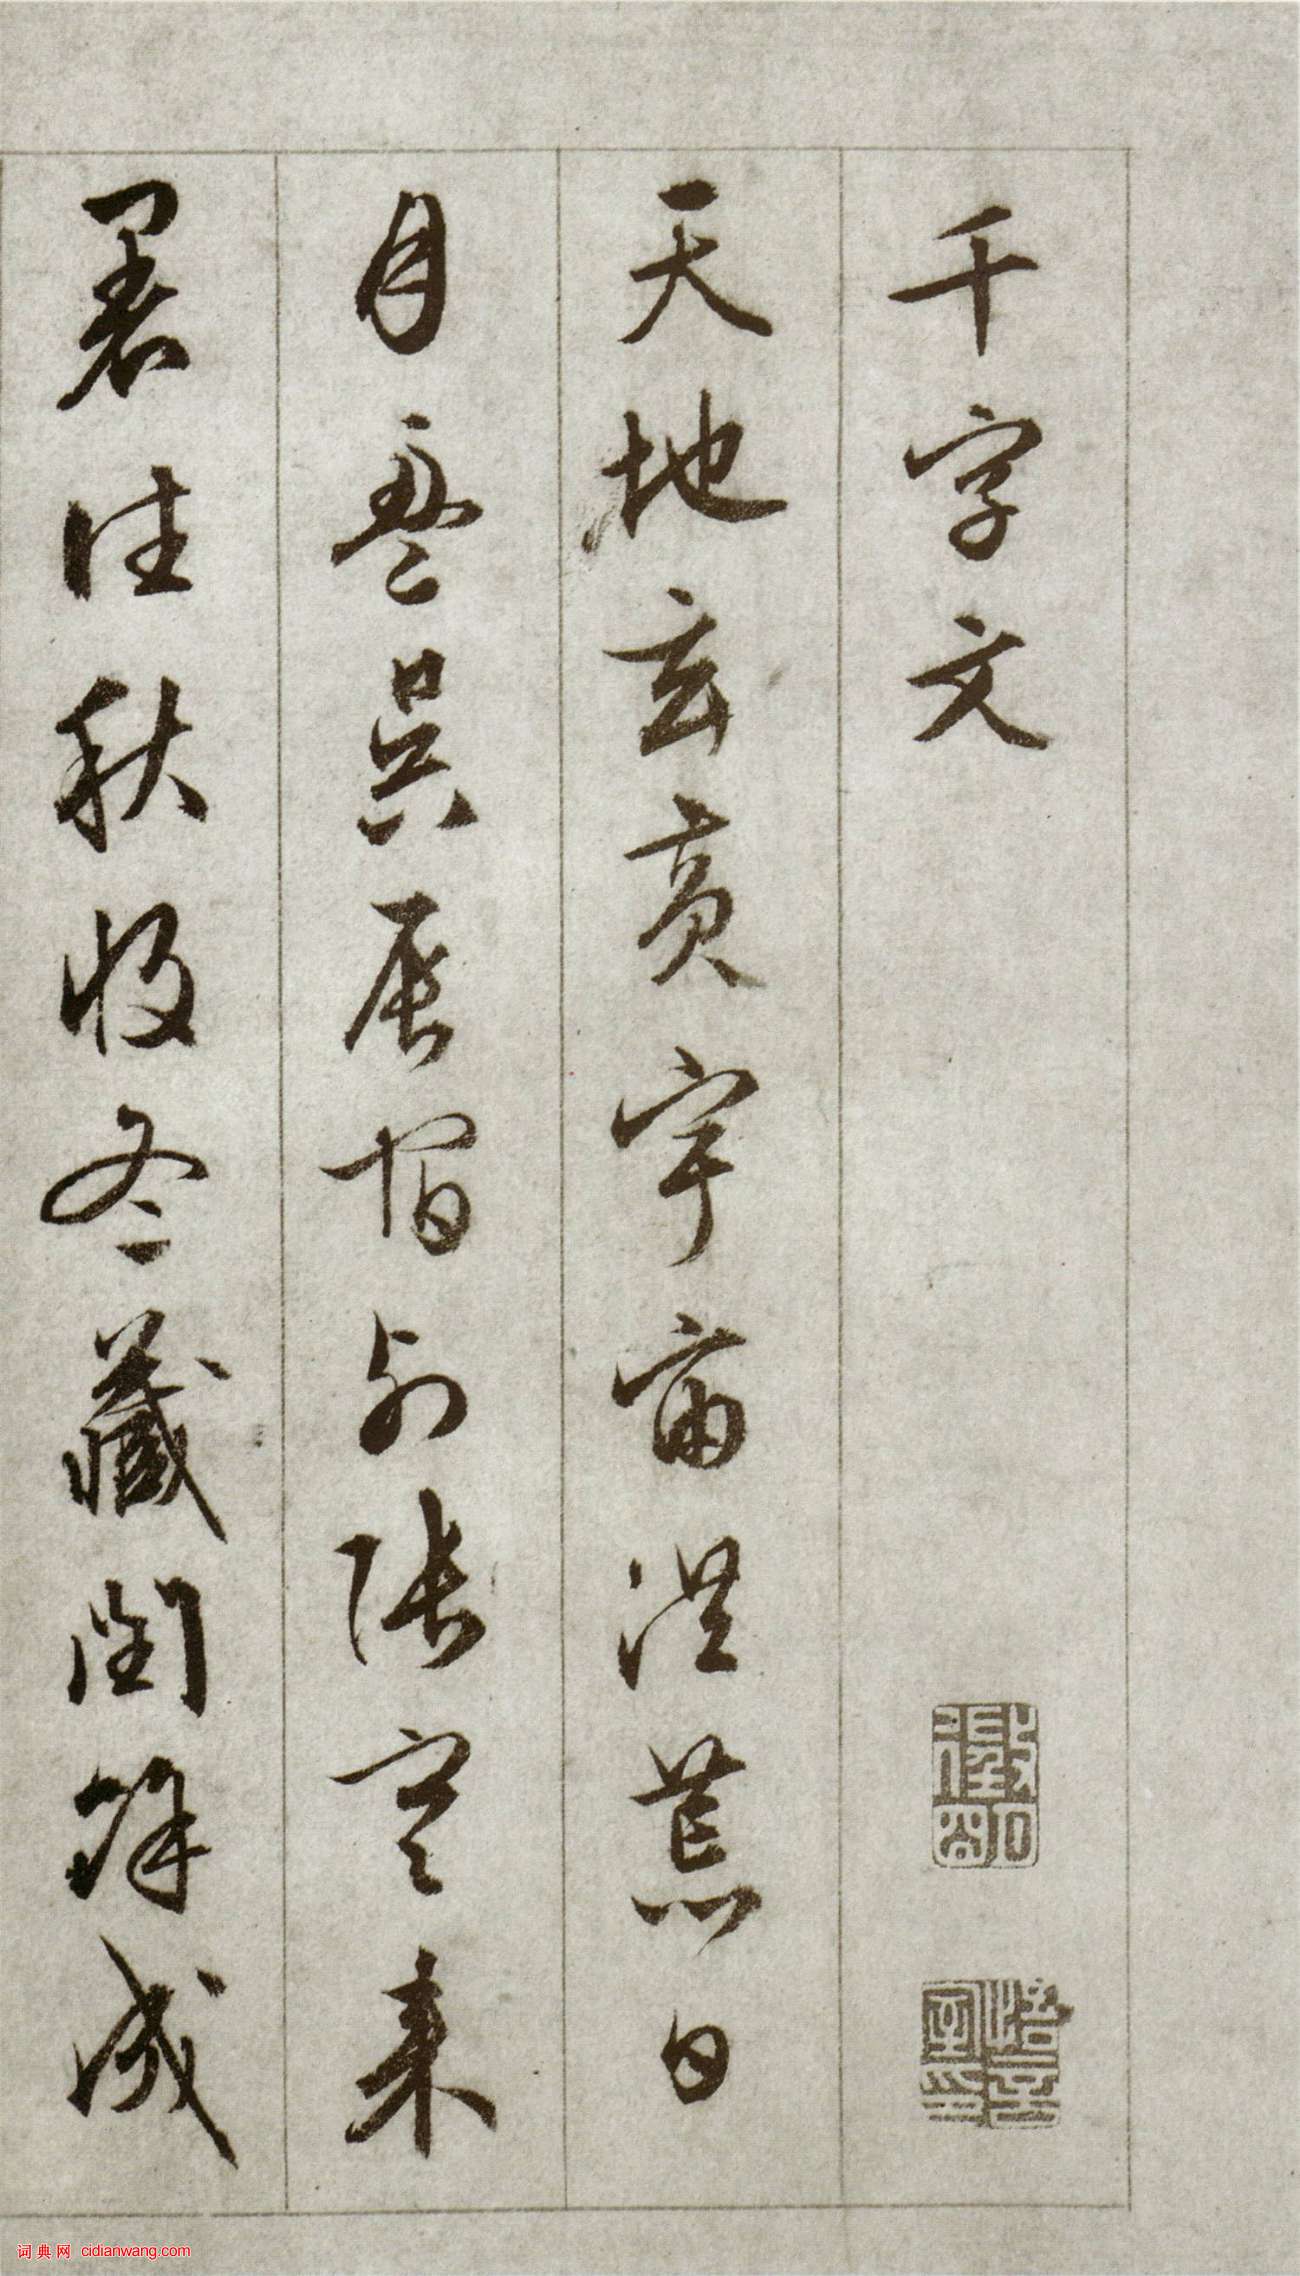 千字文
天地玄黄宇宙洪荒日
月盈昃辰宿列張寒来
暑往秋收冬藏閏餘成
词典网 cidianwang.com